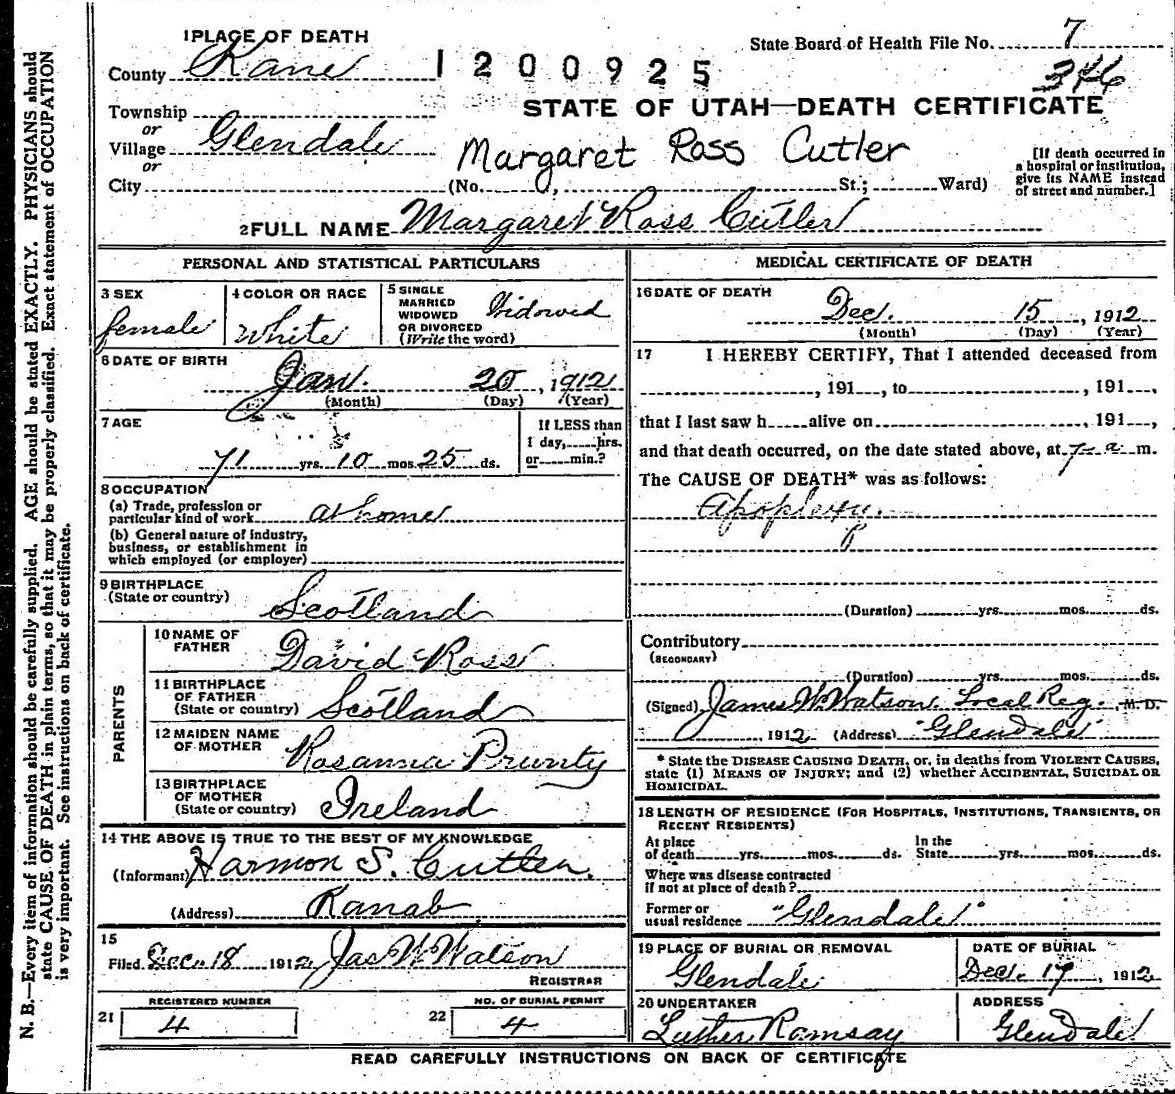 1 PLACE OF DEATH
State Board of Health File No. 7
County Kane
1200925
346
Township
STATE OF UTAH—DEATH CERTIFICATE
or
Village Glendale
Margaret Ross Cutler
or
City (No. , St.; Ward)
[If death occurred in
a hospital or institution,
give its NAME instead
of street and number.]
2 FULL NAME Margaret Ross Cutler
PERSONAL AND STATISTICAL PARTICULARS
3 SEX
female
4 COLOR OR RACE
White
5 SINGLE
MARRIED
WIDOWED
OR DIVORCED
(Write the word)
Widowed
6 DATE OF BIRTH
Jan. 20, 1912
(Month) (Day) (Year)
7 AGE
71 yrs. 10 mos. 25 ds.
If LESS than
1 day, hrs.
or min.?
8 OCCUPATION
(a) Trade, profession or
particular kind of work at home
(b) General nature of industry,
business, or establishment in
which employed (or employer)
9 BIRTHPLACE
(State or country) Scotland
PARENTS
10 NAME OF
FATHER David Ross
11 BIRTHPLACE
OF FATHER
(State or country) Scotland
12 MAIDEN NAME
OF MOTHER Rosanna Prunty
13 BIRTHPLACE
OF MOTHER
(State or country) Ireland
14 THE ABOVE IS TRUE TO THE BEST OF MY KNOWLEDGE
(Informant) Harmon S. Cutler.
(Address) Kanab
15
Filed Dec. 18 1912 Jas W Watson
REGISTRAR
REGISTERED NUMBER
21 4
NO. OF BURIAL PERMIT
22 4
MEDICAL CERTIFICATE OF DEATH
16 DATE OF DEATH
Dec. 15, 1912
(Month) (Day) (Year)
17 I HEREBY CERTIFY, That I attended deceased from
, 191 , to , 191 ,
that I last saw h alive on , 191 ,
and that death occurred, on the date stated above, at 7 a m.
The CAUSE OF DEATH* was as follows:
Apoplexy.
(Duration) yrs. mos. ds.
Contributory
(SECONDARY)
(Duration) yrs. mos. ds.
(Signed) James W. Watson. Local Reg., M. D.
, 1912 (Address) "Glendale"
* State the DISEASE CAUSING DEATH, or, in deaths from VIOLENT CAUSES,
state (1) MEANS OF INJURY; and (2) whether ACCIDENTAL, SUICIDAL OR
HOMICIDAL.
18 LENGTH OF RESIDENCE (FOR HOSPITALS, INSTITUTIONS, TRANSIENTS, OR
RECENT RESIDENTS)
At place
of death yrs. mos. ds.
In the
State yrs. mos. ds.
Where was disease contracted
if not at place of death?
Former or
usual residence "Glendale"
19 PLACE OF BURIAL OR REMOVAL
Glendale
DATE OF BURIAL
Dec. 17, 1912
20 UNDERTAKER
Luther Ramsay
ADDRESS
Glendale.
READ CAREFULLY INSTRUCTIONS ON BACK OF CERTIFICATE
N. B.—Every item of information should be carefully supplied. AGE should be stated EXACTLY. PHYSICIANS should
state CAUSE OF DEATH in plain terms, so that it may be properly classified. Exact statement of OCCUPATION
is very important. See instructions on back of certificate.